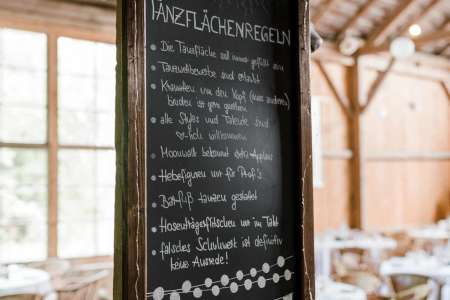 TANZFLÄCHENREGELN
Die Tanzfläche soll immer gefüllt sein
Tanzwettbewerbe sind erlaubt
Krawatten um den Kopf (eines anderen)
binden ist gern gesehen
alle Styles und Talente sind
willkommen
Moonwalk bekommt extra Applaus
Hebefiguren nur für Profi's
Barfuß tanzen gestattet
Hosenträgerflitschen nur im Takt
falsches Schuhwerk ist definitiv
keine Ausrede!